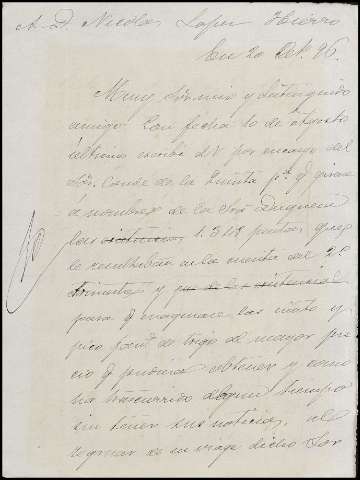 A. D. Nicolas Lopez Hierro
En 20 Oct. 96.
Muy Sor. mio y distinguido
amigo: Con fecha 10 de Agosto
último escribí á V por encargo del
Sor. Conde de la pa. q. girara
á nombre de la Sra Duquesa
las 1.318 pesetas, que
le resultaban en la cuenta del 2o.
trimestre y por
para q. las ciento y
pico fans. de trigo de mayor pre
cio q. pudiera obtener y como
ha transcurrido algun tiempo
sin tener sus noticias, al
regresar de su viage dicho Sor